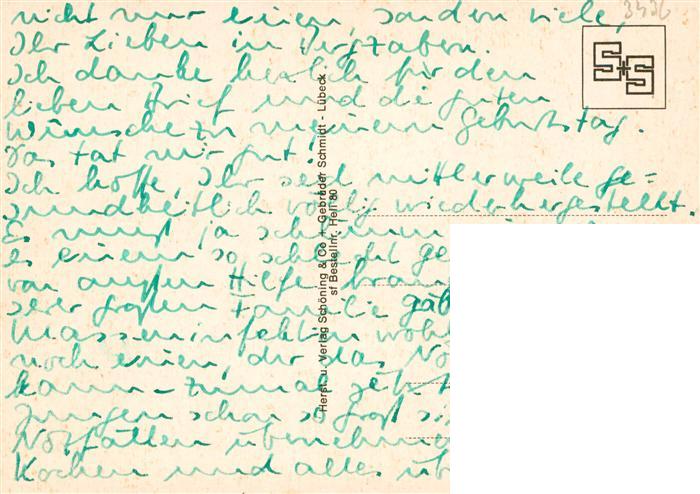 nicht nur einen, sondern viele,
3436
Ihr Lieben in Bergzabern.
Ich danke herzlich für den
lieben Brief und die guten
Wünsche zu meinem Geburtstag.
Das tat mir gut!
Ich hoffe, Ihr seid mittlerweile ge=
sundheitlich völlig wiederhergestellt.
Es muß ja schlimm
es einem so schlecht ge
von außen Hilfe brau
serer großen Familie gab
Masseninfektion wohl
noch einen, der das No
kann – zumal jetzt
Jungen schon so groß si
Notfällen übernehm
Kochen und alles üb
S+S
Herst. u. Verlag Schöning & Co + Gebrüder Schmidt - Lübeck
sf Bestellnr. Hell 80